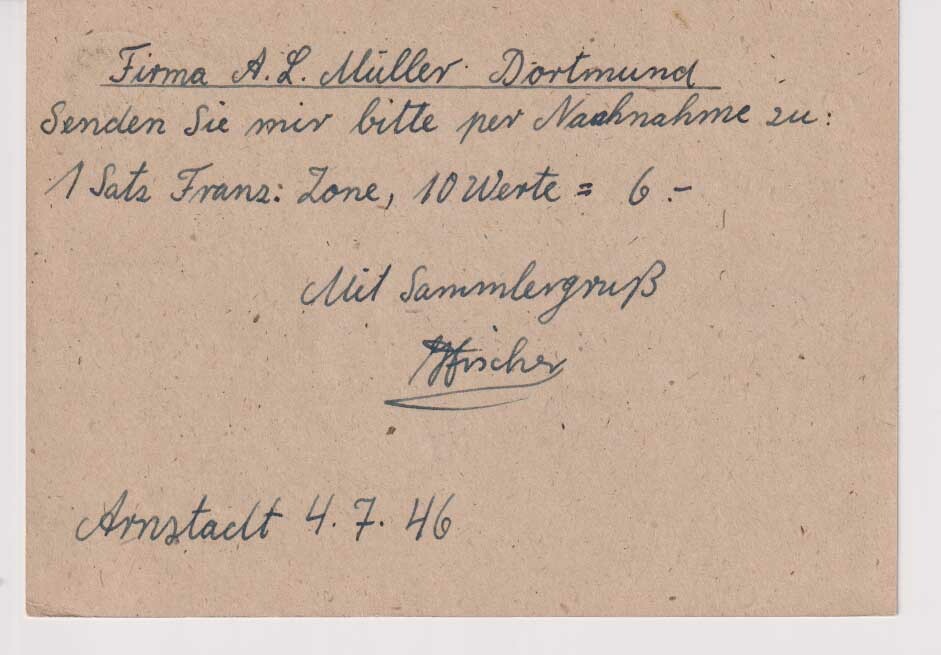 Firma A. L. Müller Dortmund
Senden Sie mir bitte per Nachnahme zu:
1 Satz Franz: Zone, 10 Werte = 6.-
Mit Sammlergruß
Fischer
Arnstadt 4. 7. 46